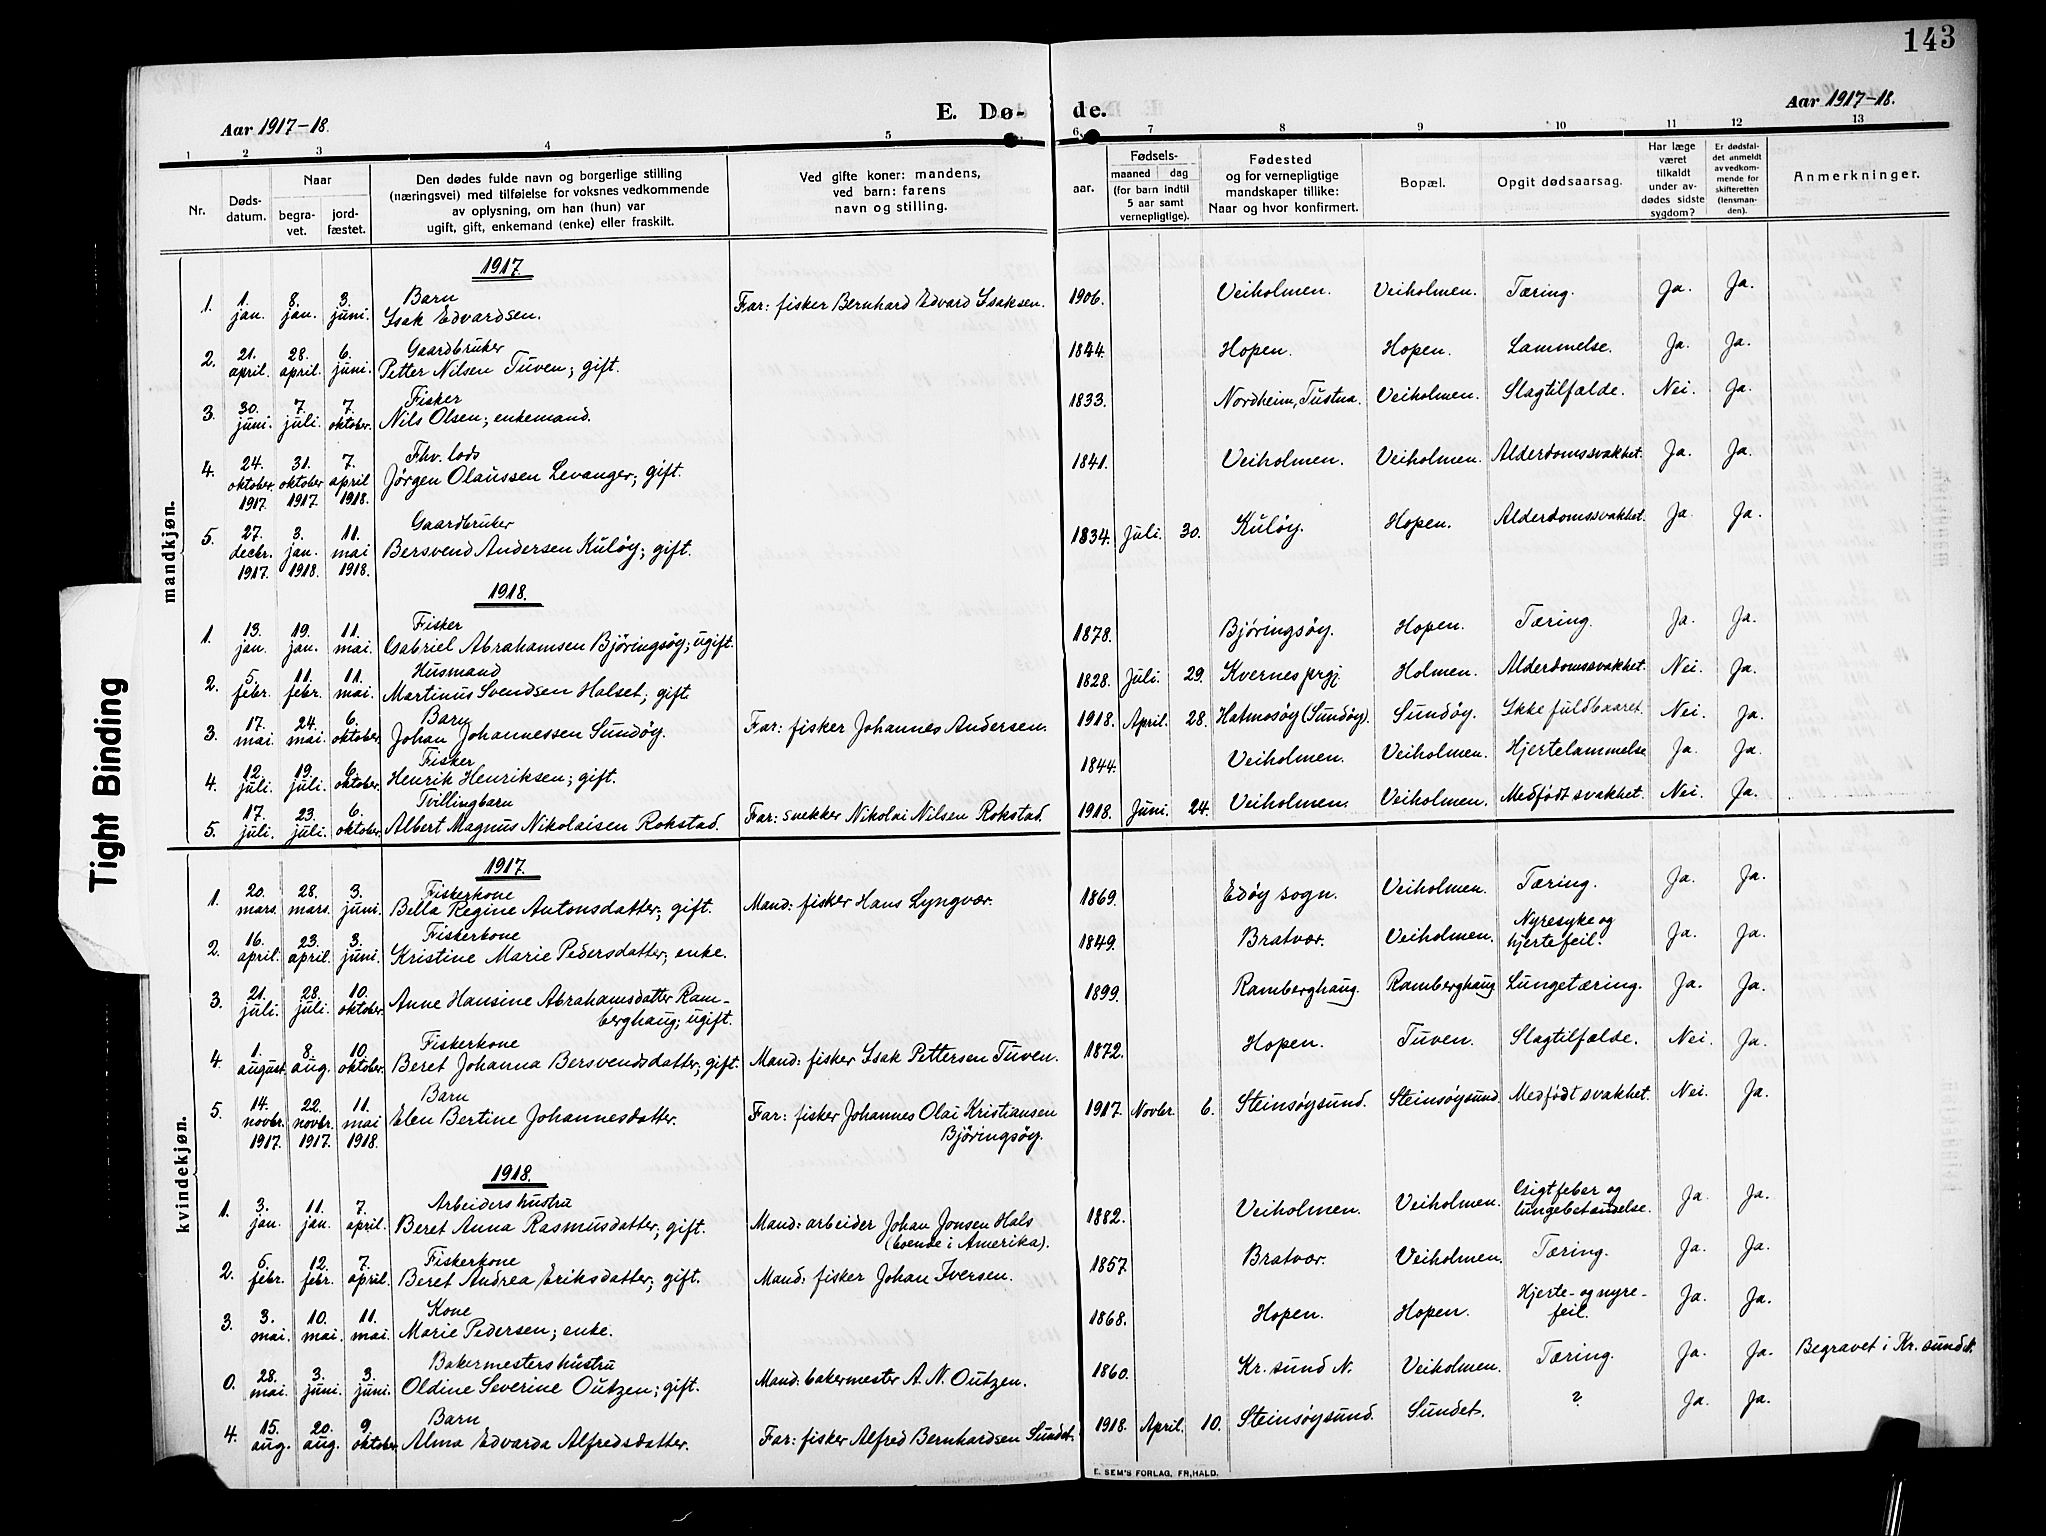 143
E. Dø- de.
Aar 1917-18.
Aar 1917-18.
1 2 3 4 5 6. 7 8 9 10 11 12 13
Nr.
Døds-
datum.
Naar
begra-
vet.
jord-
fæstet.
Den dødes fulde navn og borgerlige stilling
(næringsvei) med tilføielse for voksnes vedkommende
av oplysning, om han (hun) var
ugift, gift, enkemand (enke) eller fraskilt.
Ved gifte koner: mandens,
ved barn: farens
navn og stilling.
aar.
Fødsels-
maaned dag
(for barn indtil
5 aar samt
vernepligtige).
Fødested
og for vernepligtige
mandskaper tillike:
Naar og hvor konfirmert.
Bopæl.
Opgit dødsaarsag.
Har læge
været
tilkaldt
under av-
dødes sidste
sygdom?
Er dødsfal-
det anmeldt
av vedkom-
mende for
skifteretten
(lensman-
den).
Anmerkninger.
Tight Binding
mandkjøn.
1917.
Barn
1. 1. jan. 8. jan. 3. juni. Isak Edvardsen. Far: fisker Bernhard Edvard Isaksen. 1906. Veiholmen. Veiholmen. Tæring. Ja. Ja.
Gaardbruker
2. 21. april. 28. april. 6. juni. Petter Nilsen Tuven; gift. 1844. Hopen. Hopen. Lammelse. Ja. Ja.
Fisker
3. 30. juni. 7. juli. 7. oktober. Nils Olsen; enkemand. 1833. Nordheim, Tustna. Veiholmen. Slagtilfælde. Nei. Ja.
Fhv. lods
4. 24. oktober. 1917. 31. oktober 1917. 7. april 1918. Jörgen Olaussen Levanger; gift. 1841. Veiholmen. Veiholmen. Alderdomssvakhet. Ja. Ja.
Gaardbruker
5. 27. decbr. 1917. 3. jan. 1918. 11. mai 1918. Bersvend Andersen Kulöy; gift. 1834. Juli. 30. Kulöy. Hopen. Alderdomssvakhet. Ja. Ja.
1918.
Fisker
1. 13. jan. 19. jan. 11. mai. Gabriel Abrahamsen Björingsöy; ugift. 1878. Björingsöy. Hopen. Tæring. Ja. Ja.
Husmand
2. 5. febr. 11. febr. 11. mai. Martinus Svendsen Halset; gift. 1828. Juli. 29. Kvernes prgj. Holmen. Alderdomssvakhet. Nei. Ja.
Barn
3. 17. mai. 24. mai. 6. oktober. Johan Johannessen Sundöy. Far: fisker Johannes Andersen. 1918. April. 28. Hatmosöy (Sundöy). Sundöy. Ikke fuldbaaret. Nei. Ja.
Fisker
4. 12. juli. 19. juli. 6. oktober. Henrik Henriksen; gift. 1844. Veiholmen. Veiholmen. Hjertelammelse. Ja. Ja.
Tvillingbarn
5. 17. juli. 23. juli. 6. oktober. Albert Magnus Nikolaisen Rokstad. Far: snekker Nikolai Nilsen Rokstad. 1918. Juni. 24. Veiholmen. Veiholmen. Medfödt svakhet. Nei. Ja.
kvindekjøn.
1917.
Fiskerkone
1. 20. mars. 28. mars. 3. juni. Bella Regine Antonsdatter; gift. Mand: fisker Hans Lyngvær. 1869. Edöy sogn. Veiholmen. Tæring. Ja. Ja.
Fiskerkone
2. 16. april. 23. april. 3. juni. Kristine Marie Pedersdatter; enke. 1849. Bratvær. Veiholmen. Nyresyke og hjertefeil. Ja. Ja.
3. 21. juli. 28. juli. 10. oktober. Anne Hansine Abrahamsdatter Ram-
berghaug; ugift. 1899. Ramberghaug. Ramberghaug Lungetæring. Ja. Ja.
Fiskerkone
4. 1. august. 8. aug. 10. oktober. Beret Johanna Bersvendsdatter; gift. Mand: fisker Isak Pettersen Tuven. 1872. Hopen. Tuven. Slagtilfælde. Nei. Ja.
Barn
5. 14. novbr. 1917. 22. novbr. 1917. 11. mai 1918. Elen Bertine Johannesdatter. Far: fisker Johannes Olai Kristiansen
Björingsöy. 1917. Novbr. 6. Steinsöysund. Steinsöysund. Medfödt svakhet. Nei. Ja.
1918.
Arbeiders hustru
1. 3. jan. 11. jan. 7. april. Beret Anna Rasmusdatter; gift. Mand: arbeider Johan Jonsen Hals
(boende i Amerika). 1882. Veiholmen. Veiholmen. Gigtfeber og lungebetændelse. Ja. Ja.
Fiskerkone
2. 5. febr. 12. febr. 7. april. Beret Andrea Eriksdatter; gift. Mand: fisker Johan Iversen. 1857. Bratvær. Veiholmen. Tæring. Ja. Ja.
Kone
3. 3. mai. 10. mai. 11. mai. Marie Pedersen; enke. 1868. Hopen. Hopen. Hjerte- og nyre-
feil. Ja. Ja.
Bakermesters hustru
0. 28. mai. 3. juni. 3. juni. Oldine Severine Outzen; gift. Mand: bakermester A. N. Outzen. 1860. Kr. sund N. Veiholmen. Tæring. Ja. Ja. Begravet i Kr. sund N.
Barn
4. 15. aug. 20. aug. 9. oktober. Alma Edvarda Alfredsdatter. Far: fisker Alfred Bernhardsen Sundet. 1918. April. 10. Steinsöysund. Sundet. ? Ja. Ja.
E. SEM'S FORLAG, FR.HALD.